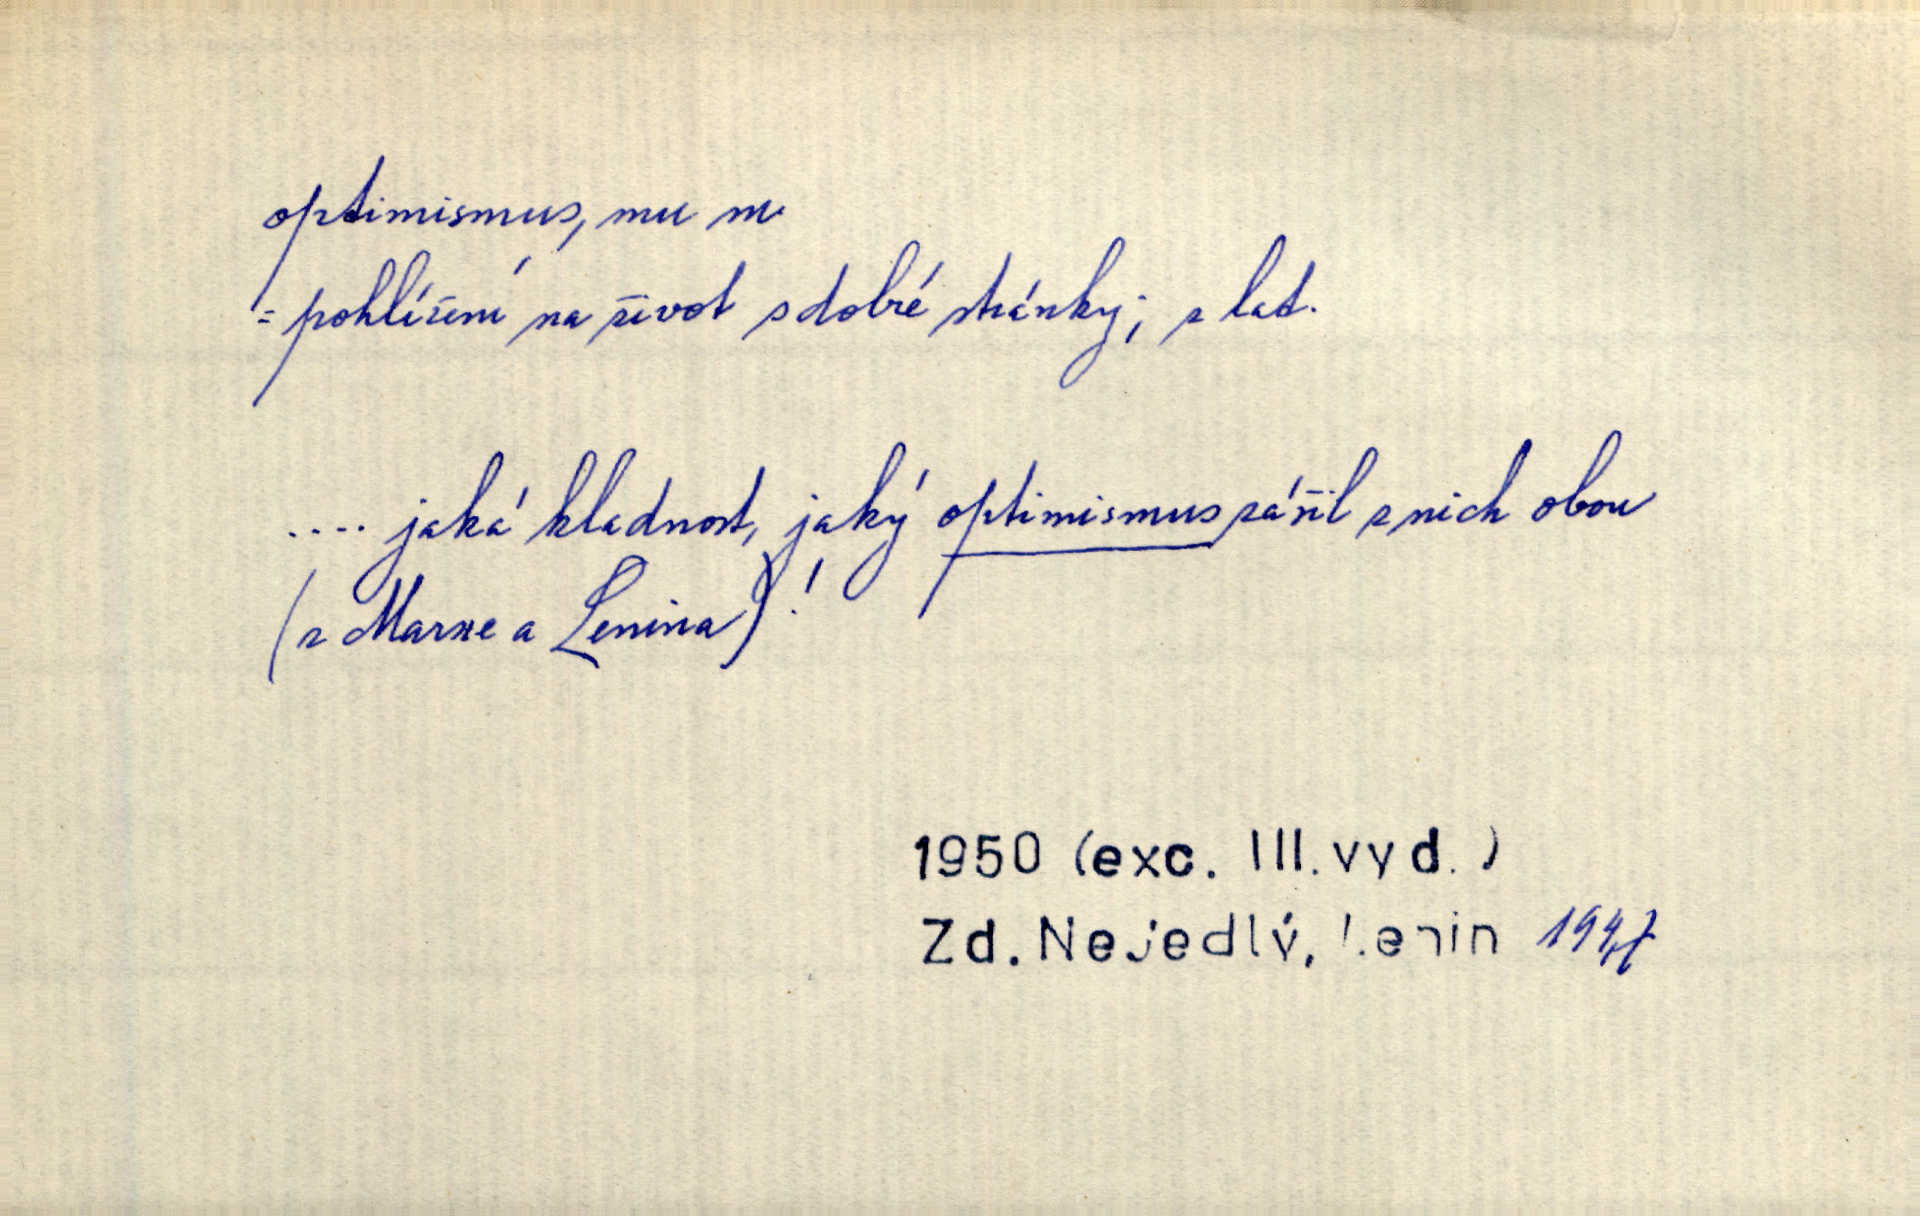 optimismus, mu m.
= pohlížení na život s dobré stránky; z lat.
.... jaká kladnost, jaký optimismus zářil z nich obou
(z Marxe a Lenina)!
1950 (exc. III. vyd.)
Zd. Nejedlý, Lenin 1947